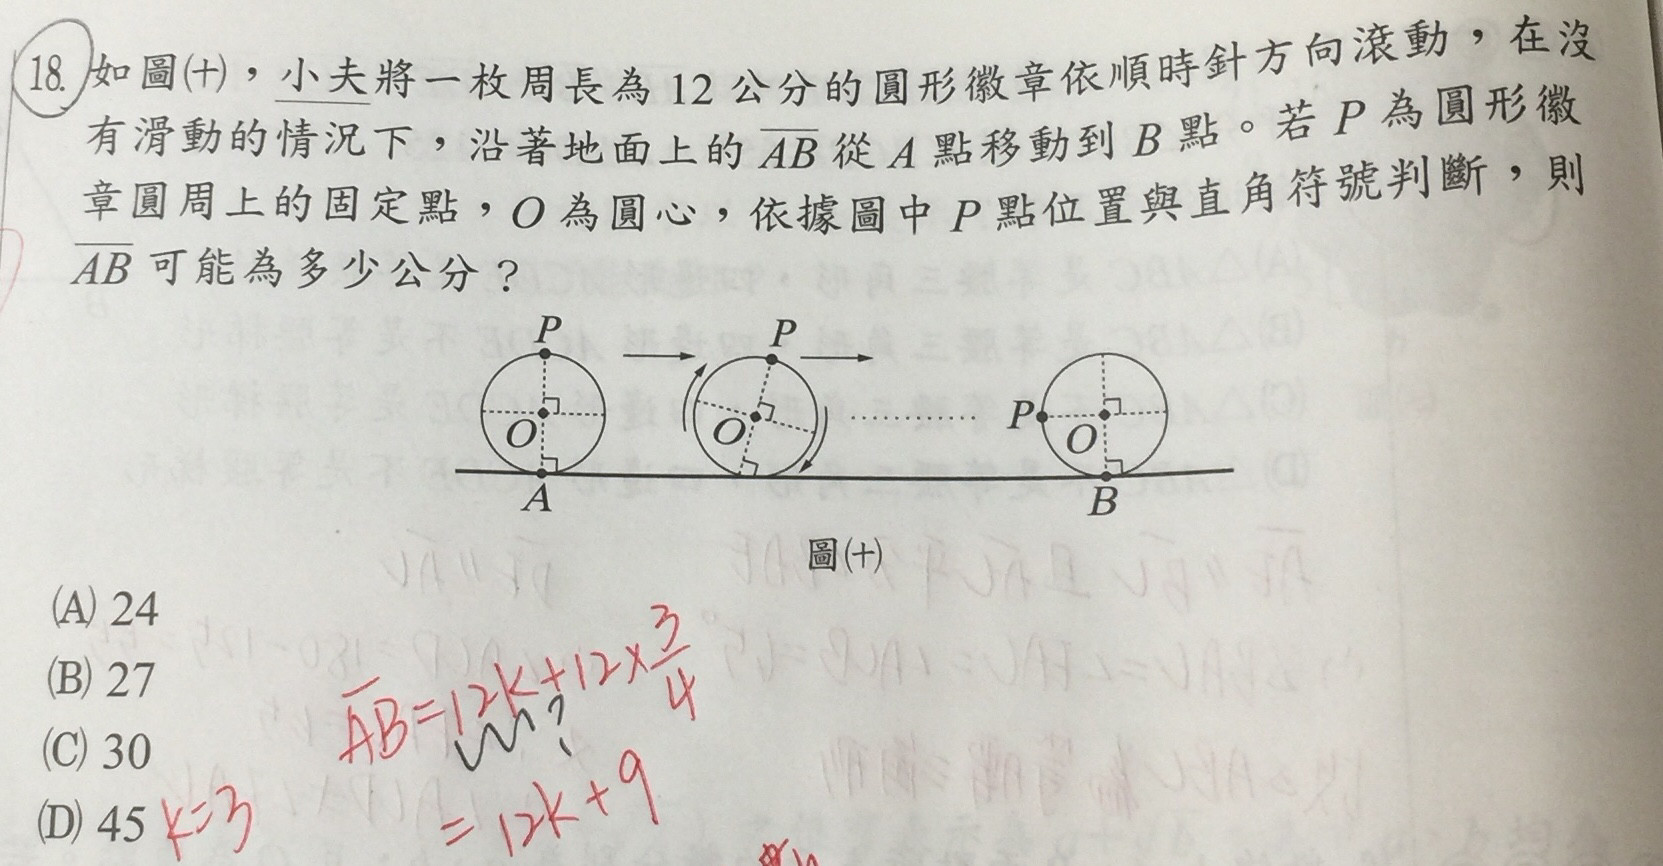 18. 如圖(十)，小夫將一枚周長為 12 公分的圓形徽章依順時針方向滾動，在沒
有滑動的情況下，沿著地面上的 AB 從 A 點移動到 B 點。若 P 為圓形徽
章圓周上的固定點，O 為圓心，依據圖中 P 點位置與直角符號判斷，則
AB 可能為多少公分？
P P
P
O O O
A B
圖(十)
(A) 24
(B) 27
(C) 30
(D) 45 k=3
AB=12k+12×3/4
?
=12k+9